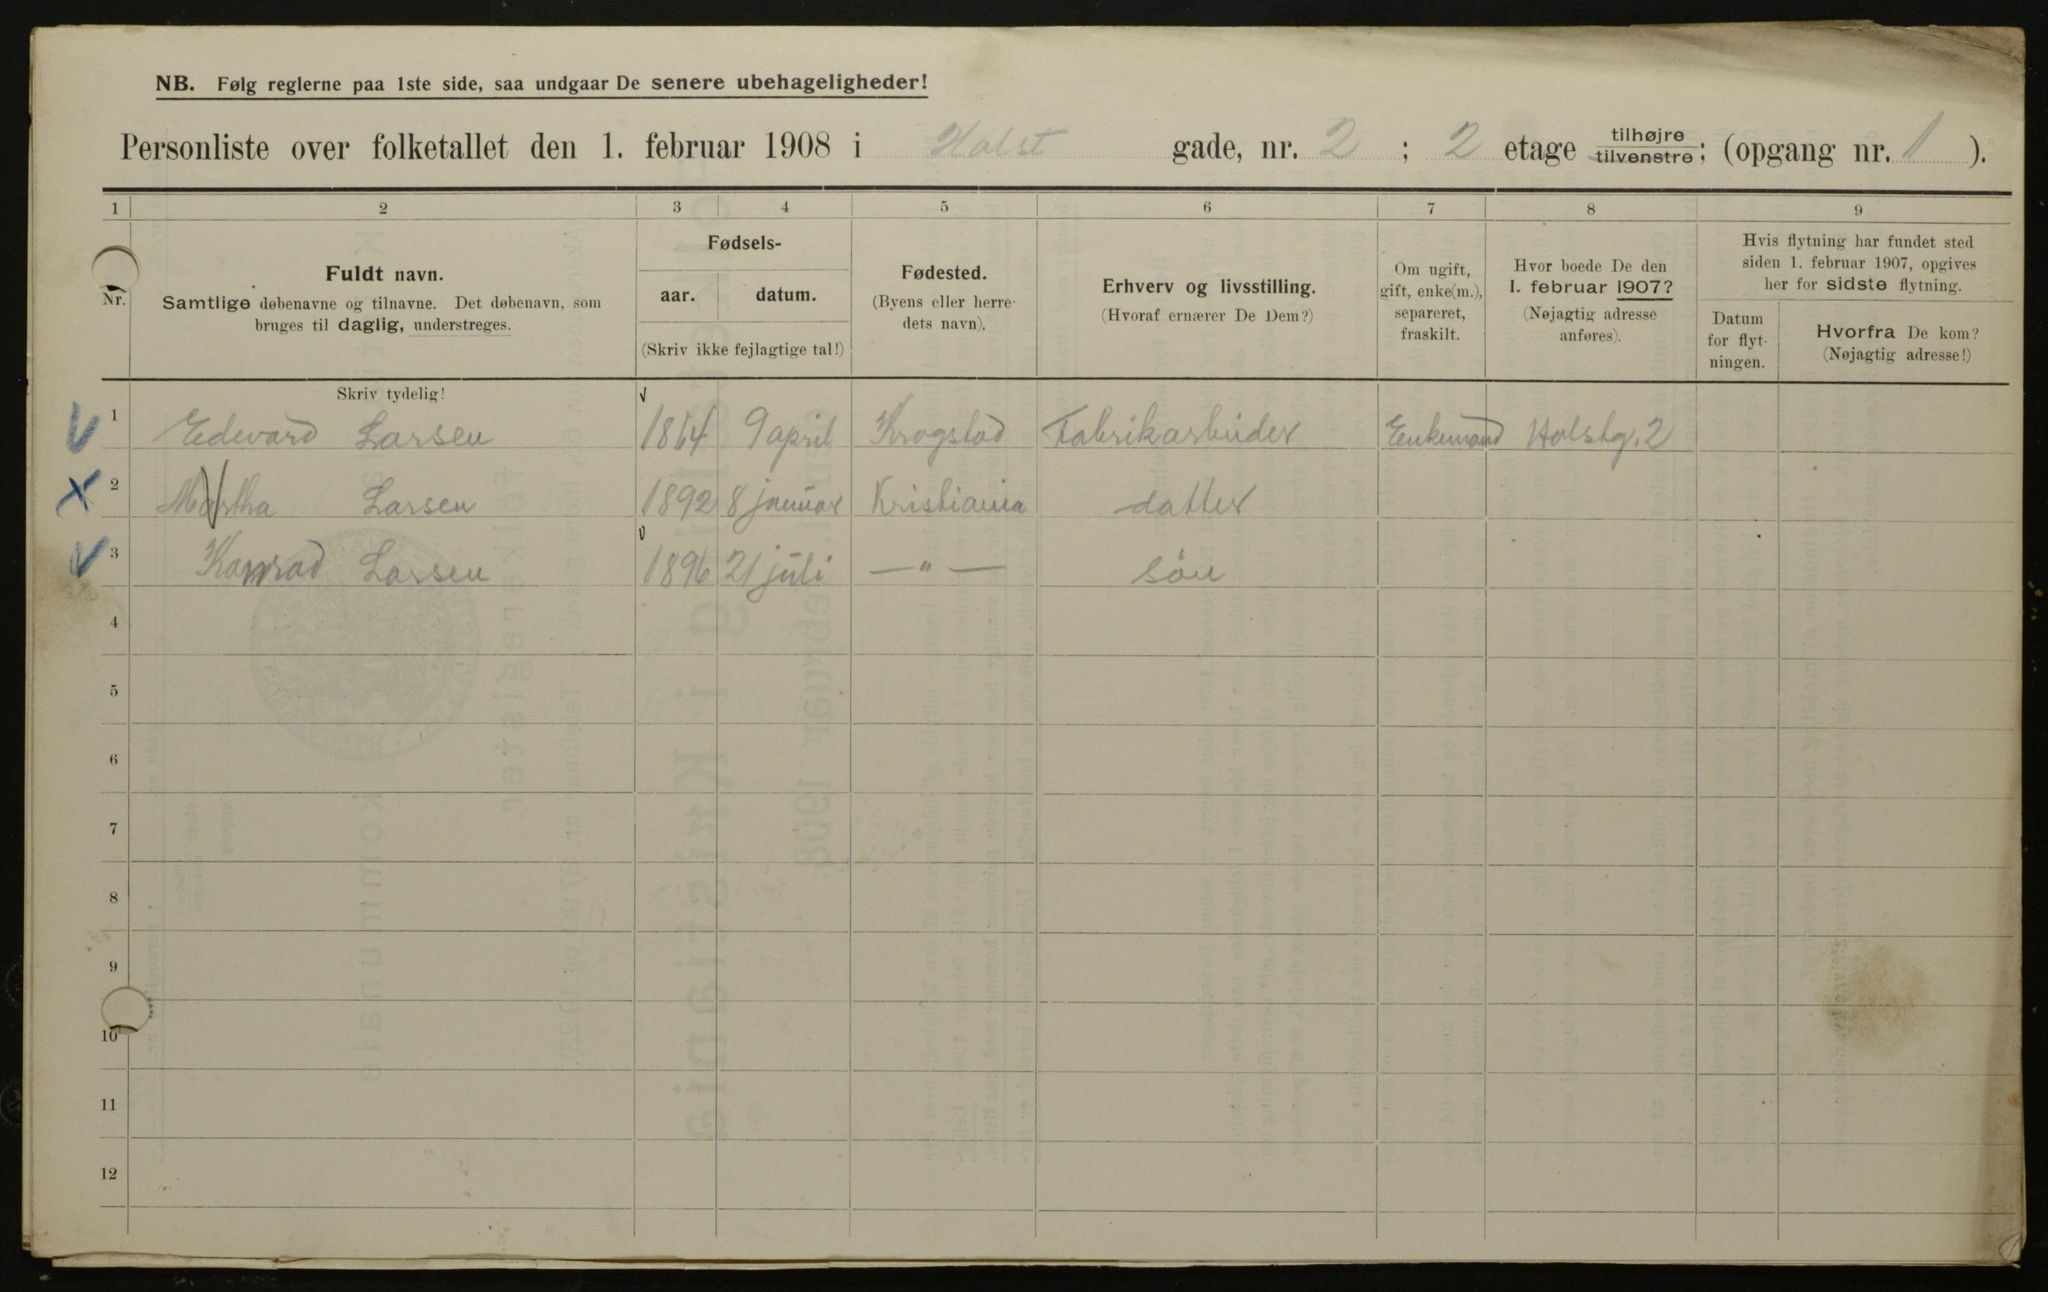 NB. Følg reglerne paa 1ste side, saa undgaar De senere ubehageligheder!
Personliste over folketallet den 1. februar 1908 i Holst gade, nr. 2 ; 2 etage tilhøjre/tilvenstre; (opgang nr. 1 ).
1 2 3 4 5 6 7 8 9
Nr.
Fuldt navn.
Samtlige døbenavne og tilnavne. Det døbenavn, som
bruges til daglig, understreges.
Fødsels-
aar. datum.
(Skriv ikke fejlagtige tal!)
Fødested.
(Byens eller herre-
dets navn).
Erhverv og livsstilling.
(Hvoraf ernærer De Dem?)
Om ugift,
gift, enke(m.),
separeret,
fraskilt.
Hvor boede De den
1. februar 1907?
(Nøjagtig adresse
anføres).
Hvis flytning har fundet sted
siden 1. februar 1907, opgives
her for sidste flytning.
Datum
for flyt-
ningen.
Hvorfra De kom?
(Nøjagtig adresse!)
Skriv tydelig!
1 Edevard Larsen 1864 9 april Krogstad Fabrikarbeider Enkemand Holstg. 2
2 Martha Larsen 1892 8 januar Kristiania datter
3 Konrad Larsen 1896 21 juli — " — søn
4
5
6
7
8
9
10
11
12